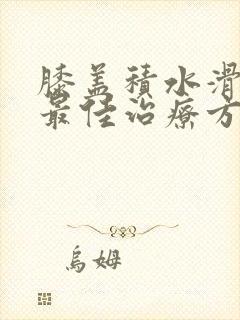 膝盖積水滑
最佳治療方
烏姆